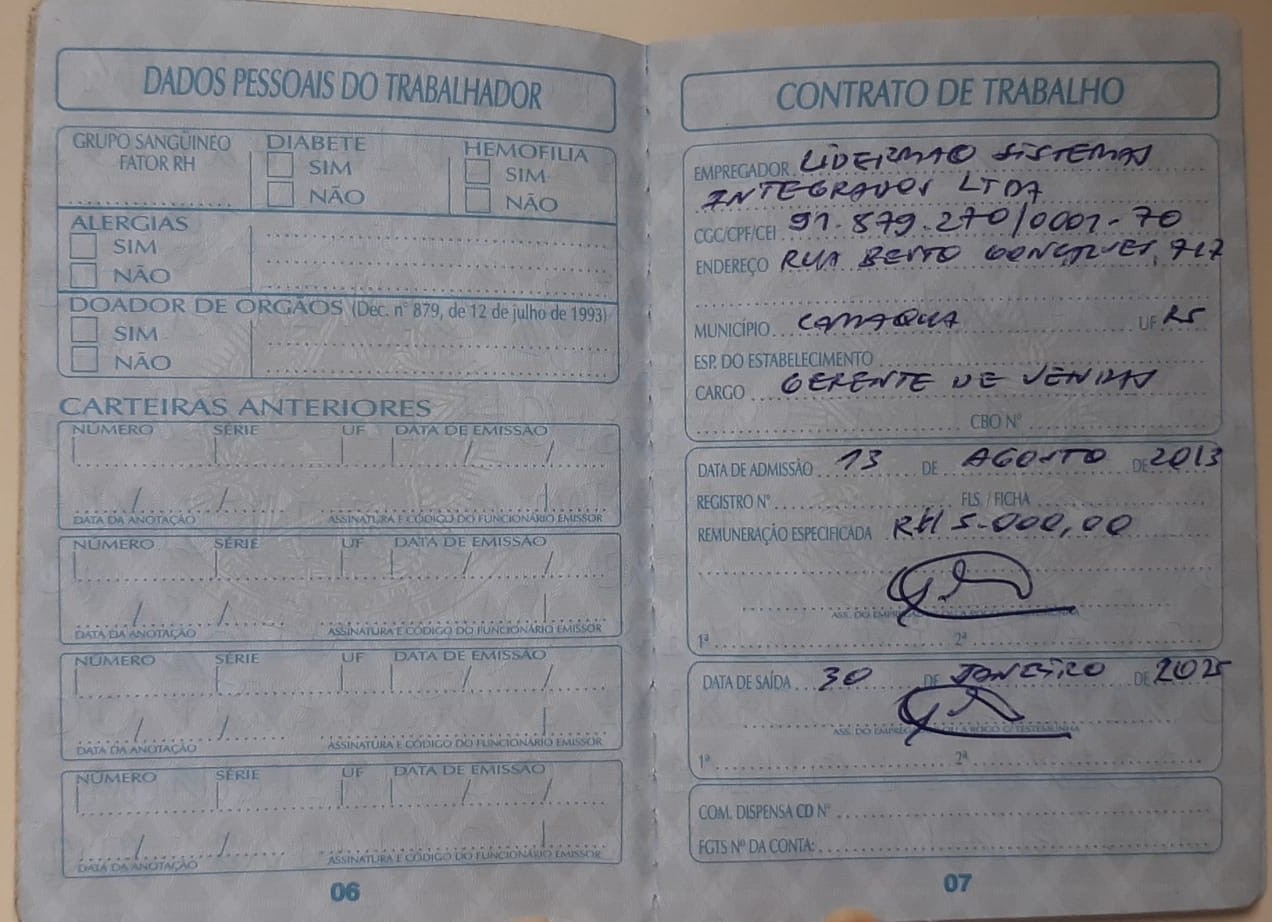 DADOS PESSOAIS DO TRABALHADOR
GRUPO SANGÜINEO
FATOR RH
DIABETE
SIM
NÃO
HEMOFILIA
SIM
NÃO
ALERGIAS
SIM
NÃO
DOADOR DE ORGÃOS (Dec. nº 879, de 12 de julho de 1993)
SIM
NÃO
CARTEIRAS ANTERIORES
NÚMERO SÉRIE UF DATA DE EMISSÃO
DATA DA ANOTAÇÃO ASSINATURA E CÓDIGO DO FUNCIONÁRIO EMISSOR
NÚMERO SÉRIE UF DATA DE EMISSÃO
DATA DA ANOTAÇÃO ASSINATURA E CÓDIGO DO FUNCIONÁRIO EMISSOR
NÚMERO SÉRIE UF DATA DE EMISSÃO
DATA DA ANOTAÇÃO ASSINATURA E CÓDIGO DO FUNCIONÁRIO EMISSOR
NÚMERO SÉRIE UF DATA DE EMISSÃO
DATA DA ANOTAÇÃO ASSINATURA E CÓDIGO DO FUNCIONÁRIO EMISSOR
06
CONTRATO DE TRABALHO
EMPREGADOR SISTEMAS
INTEGRADOS LTDA
CGC/CPF/CEI 91.879.270/0001-70
ENDEREÇO RUA BENTO GONÇALVES, 717
MUNICÍPIO CAMAQUA UF RS
ESP. DO ESTABELECIMENTO
CARGO GERENTE DE VENDAS
CBO Nº
DATA DE ADMISSÃO 13 DE AGOSTO DE 2013
REGISTRO Nº FLS. / FICHA
REMUNERAÇÃO ESPECIFICADA 5.000,00
1ª 2ª
DATA DE SAÍDA 30 DE JANEIRO DE 2025
1ª 2ª
COM. DISPENSA CD Nº
FGTS Nº DA CONTA:
07